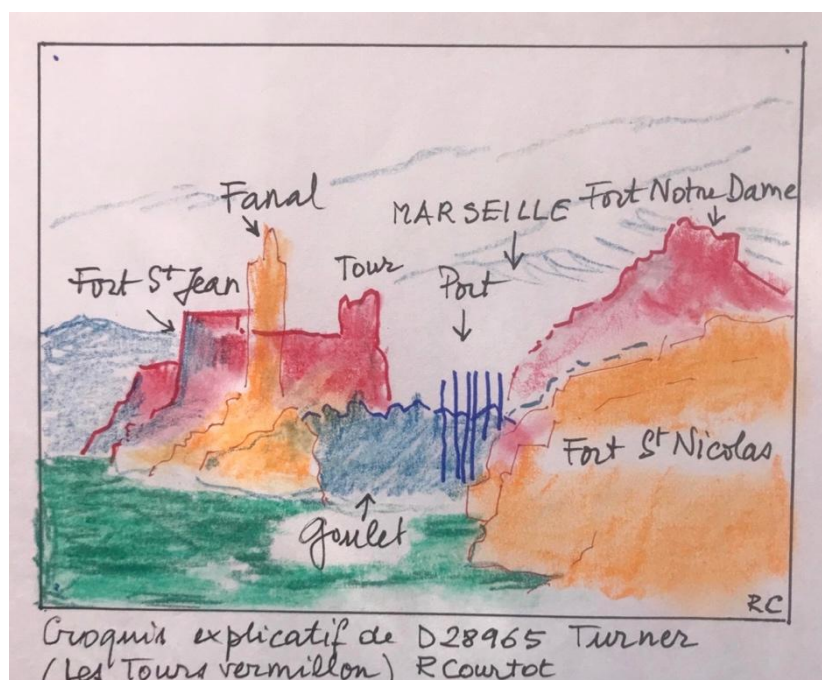 Fanal
MARSEILLE
Fort Notre Dame
Fort St Jean
Tour
Port
Fort St Nicolas
Goulet
RC
Croquis explicatif de D28965 Turner
(Les Tours vermillon) R Courtot